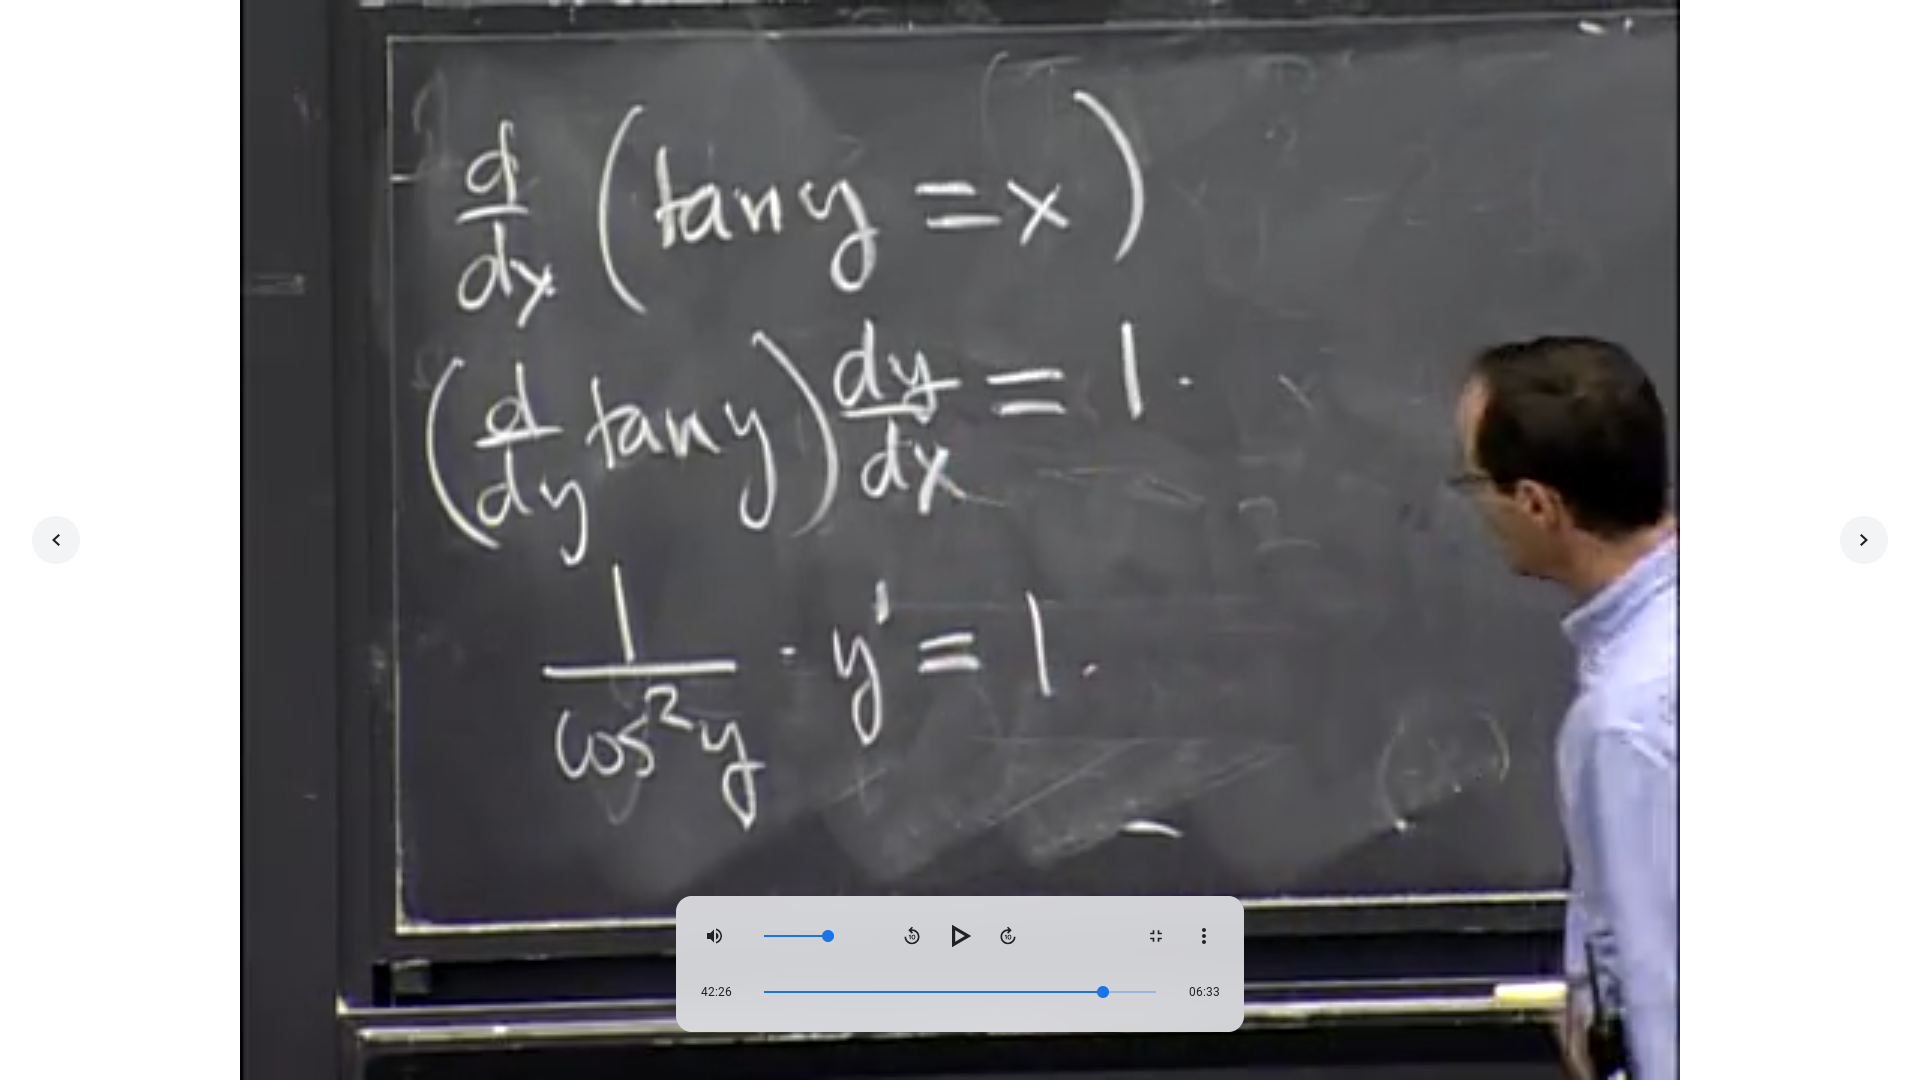 d/dx (tan y = x)
(d/dy tan y) dy/dx = 1.
1/cos²y · y' = 1.
10
10
42:26
06:33